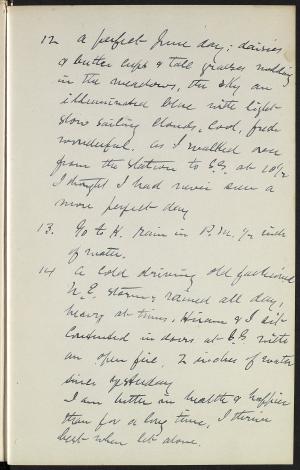 12 a perfect June day; daisies
& butter cups & tall grasses nodding
in the meadows, the sky an
illuminated blue with light
slow sailing clouds, cool, fresh
wonderful. as I walked over
from the station to S.S. at 10 1/2
I thought I had never seen a
more perfect day
13. Go to H. rain in P.M. 1/2 inch
of water.
14 a cold driving old fashioned
N.E. storm, rained all day,
heavy at times, Hiram & I sit
in doors at S.S. with
an open fire. 2 inches of water
since yesterday
I am better in health & happier
than for a long time, I thrive
best when let alone.